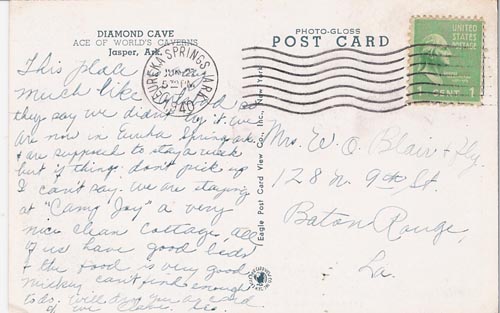 DIAMOND CAVE
ACE OF WORLD'S CAVERNS
Jasper, Ark.
PHOTO-GLOSS
POST CARD
UNITED STATES POSTAGE
1 CENT 1
EUREKA SPRINGS, ARK.
1940
This place
much like
they say we didn't by it. We
are now in Eureka Springs Ark
& are supposed to stay a week
but if things don't pick up
I can't say. We are staying
at "Camp Joy" a very
nice clean cottage, all
of us have good beds
& the food is very good
Mickey can't find enough
to do. Will drop you a card
if we leave.
Eagle Post Card View Co., Inc., New York
Mrs. W. O. Blair & fly.
128 N. 9th St.
Baton Rouge,
La.